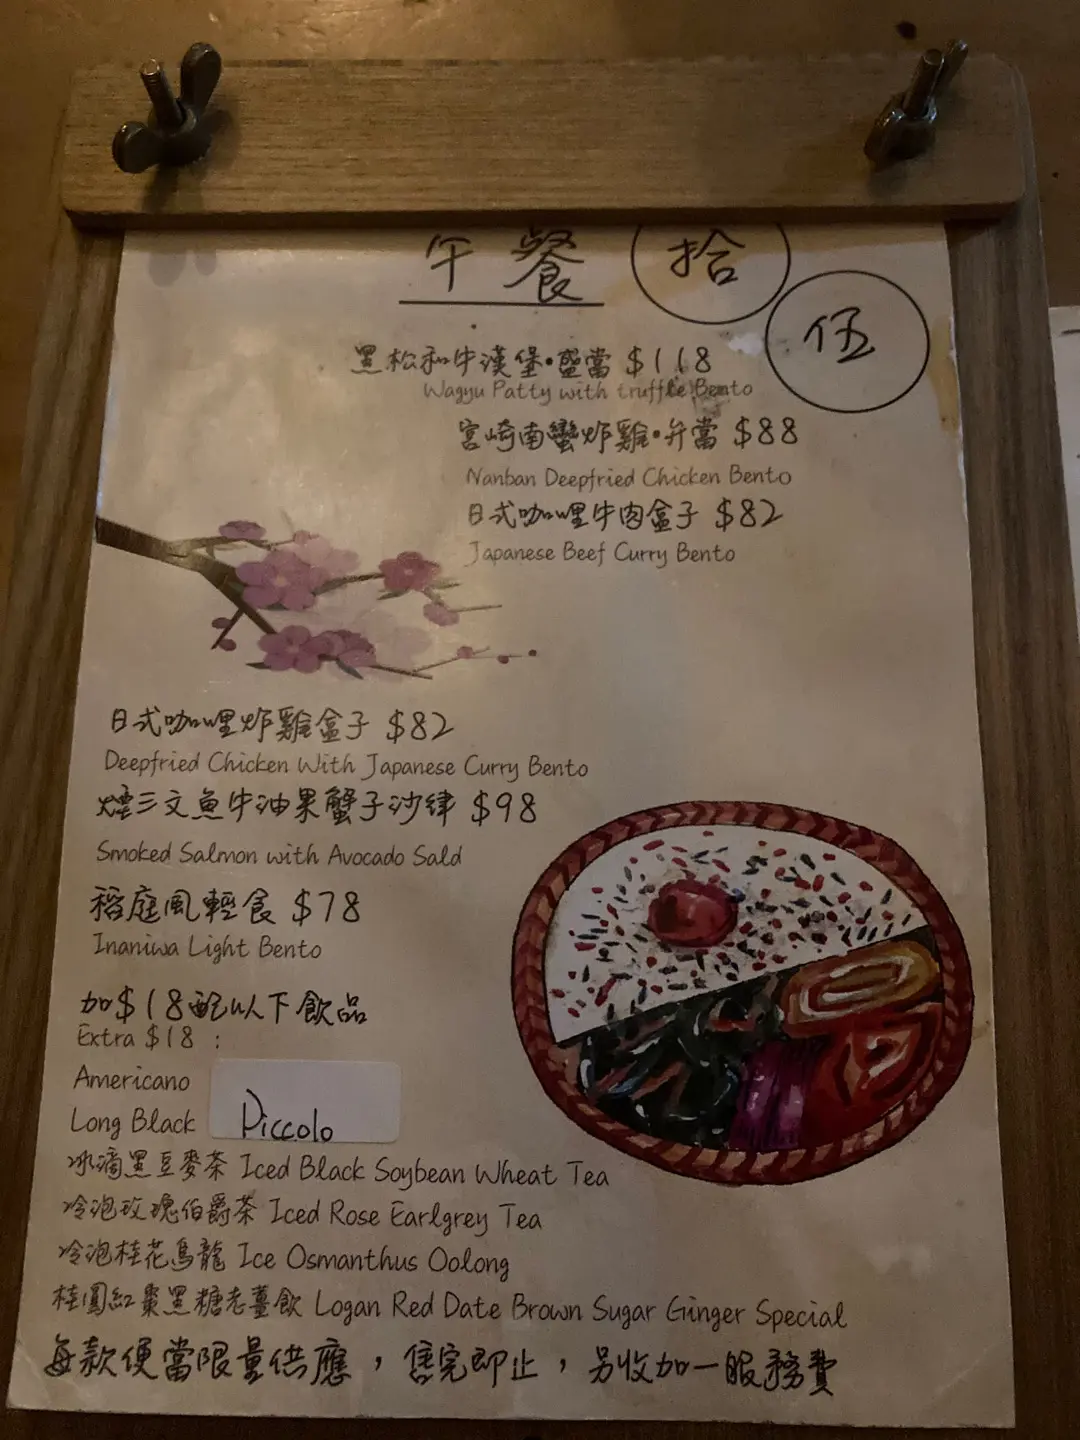 午餐
拾
伍
黑松和牛漢堡•盛當 $118
Wagyu Patty with truffle Bento
宮崎南蠻炸雞•弁當 $88
Nanban Deepfried Chicken Bento
日式咖喱牛肉盒子 $82
Japanese Beef Curry Bento
日式咖喱炸雞盒子 $82
Deepfried Chicken With Japanese Curry Bento
煙三文魚牛油果蟹子沙律 $98
Smoked Salmon with Avocado Sald
稻庭風輕食 $78
Inaniwa Light Bento
加$18配以下飲品
Extra $18 :
Americano
Long Black Piccolo
冰滴黑豆麥茶 Iced Black Soybean Wheat Tea
冷泡玫瑰伯爵茶 Iced Rose Earlgrey Tea
冷泡桂花烏龍 Ice Osmanthus Oolong
桂圓紅棗黑糖老薑飲 Logan Red Date Brown Sugar Ginger Special
每款便當限量供應，售完即止，另收加一服務費